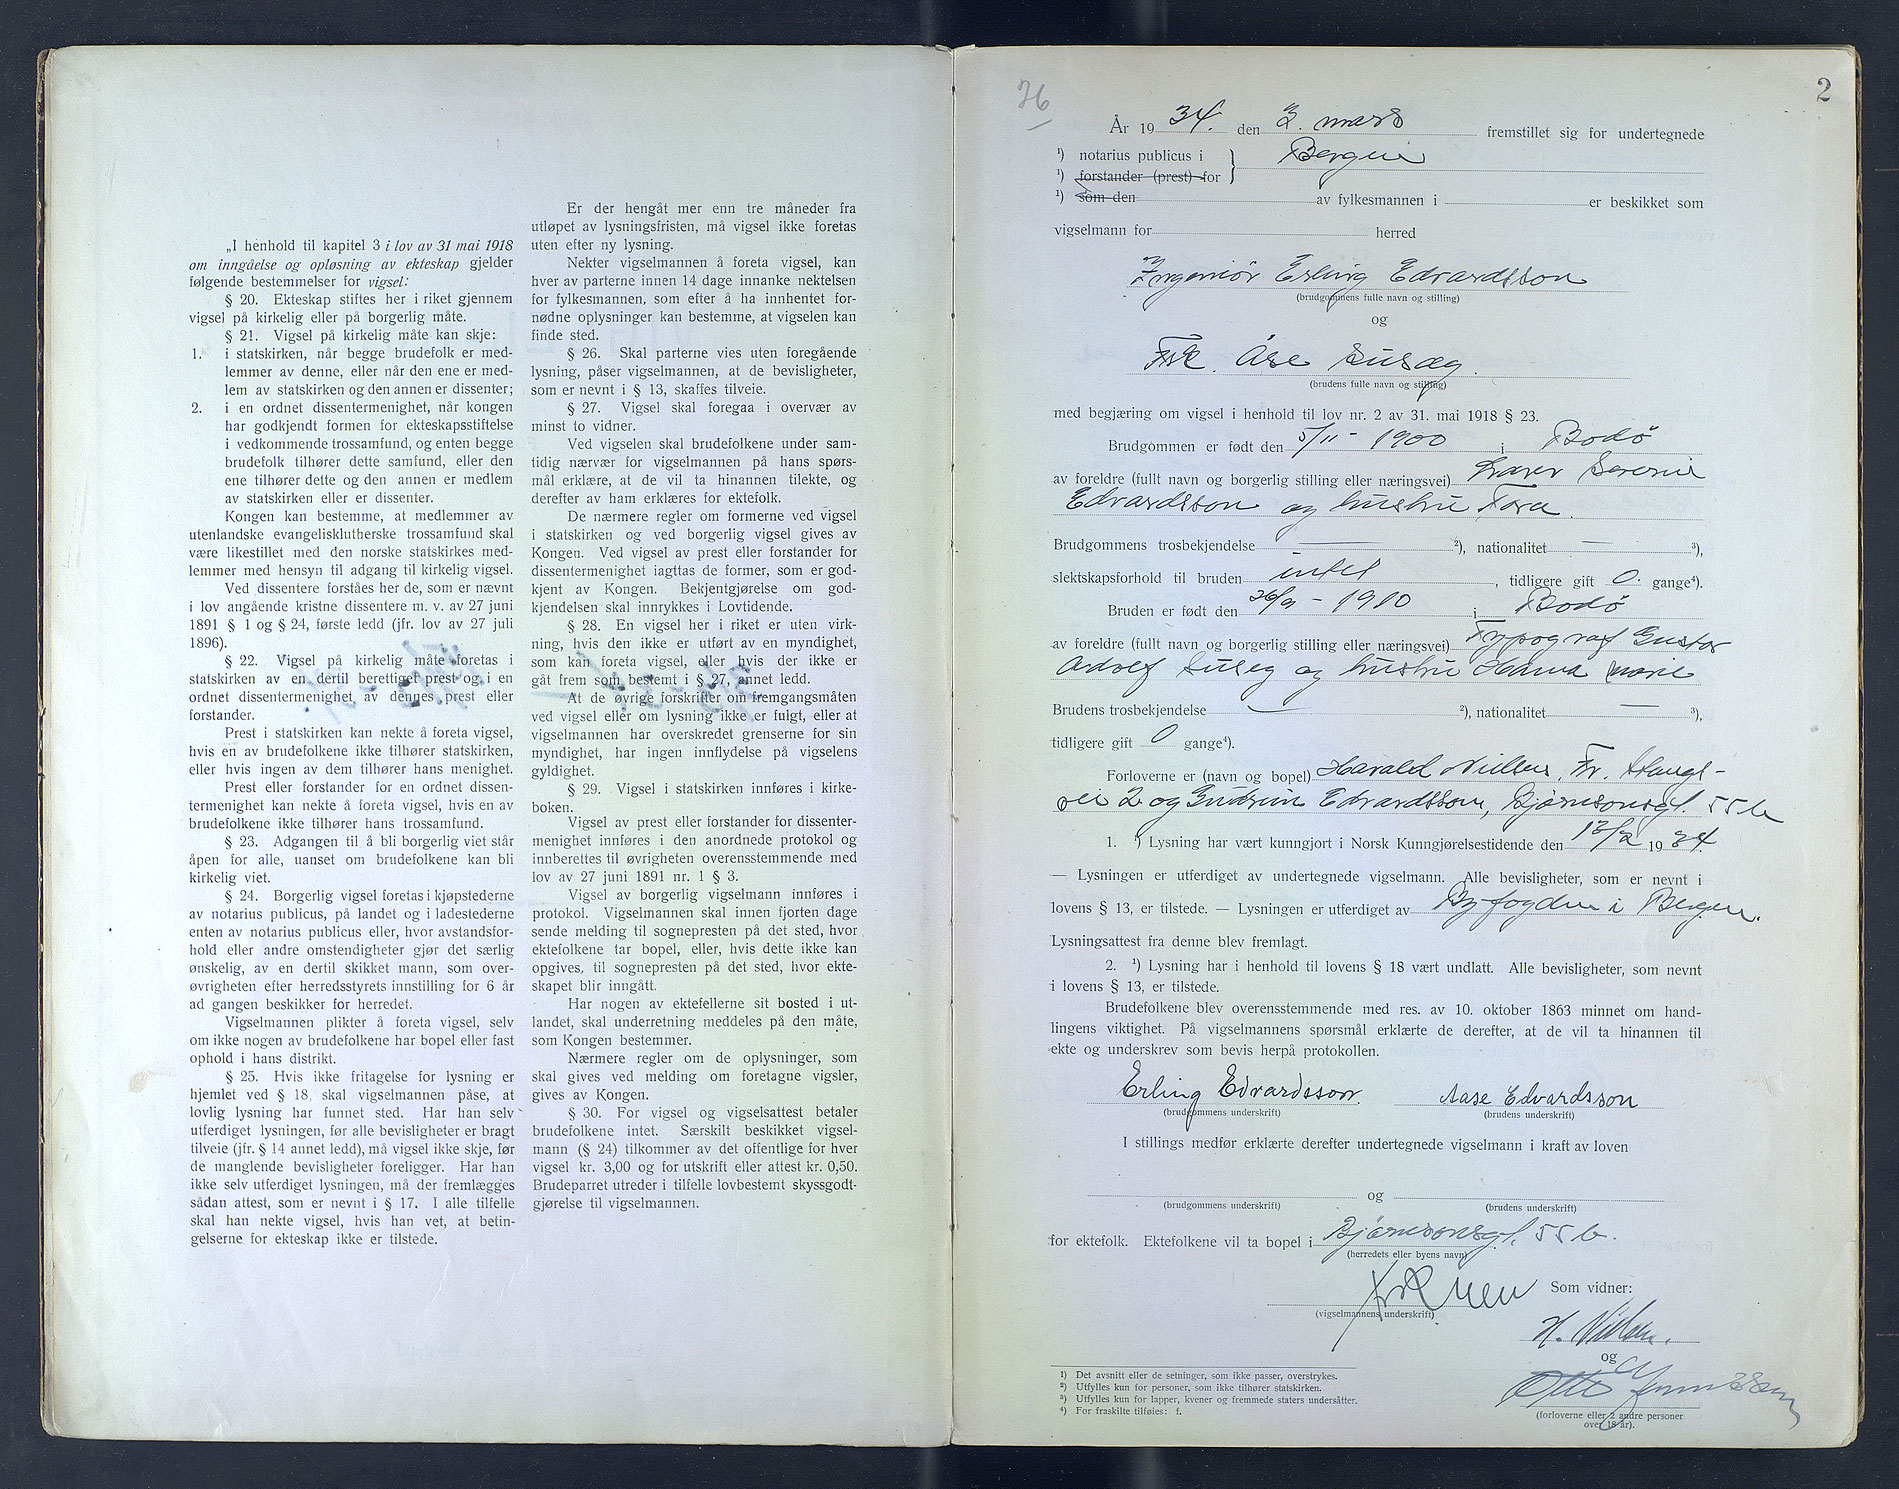 „I henhold til kapitel 3 i lov av 31 mai 1918
om inngåelse og opløsning av ekteskap gjelder
følgende bestemmelser for vigsel:
§ 20. Ekteskap stiftes her i riket gjennem
vigsel på kirkelig eller på borgerlig måte.
§ 21. Vigsel på kirkelig måte kan skje:
1. i statskirken, når begge brudefolk er med-
lemmer av denne, eller når den ene er med-
lem av statskirken og den annen er dissenter;
2. i en ordnet dissentermenighet, når kongen
har godkjendt formen for ekteskapsstiftelse
i vedkommende trossamfund, og enten begge
brudefolk tilhører dette samfund, eller den
ene tilhører dette og den annen er medlem
av statskirken eller er dissenter.
Kongen kan bestemme, at medlemmer av
utenlandske evangelisklutherske trossamfund skal
være likestillet med den norske statskirkes med-
lemmer med hensyn til adgang til kirkelig vigsel.
Ved dissentere forståes her de, som er nævnt
i lov angående kristne dissentere m. v. av 27 juni
1891 § 1 og § 24, første ledd (jfr. lov av 27 juli
1896).
§ 22. Vigsel på kirkelig måte foretas i
statskirken av en dertil berettiget prest og i en
ordnet dissentermenighet av dennes prest eller
forstander.
Prest i statskirken kan nekte å foreta vigsel,
hvis en av brudefolkene ikke tilhører statskirken,
eller hvis ingen av dem tilhører hans menighet.
Prest eller forstander for en ordnet dissen-
termenighet kan nekte å foreta vigsel, hvis en av
brudefolkene ikke tilhører hans trossamfund.
§ 23. Adgangen til å bli borgerlig viet står
åpen for alle, uanset om brudefolkene kan bli
kirkelig viet.
§ 24. Borgerlig vigsel foretas i kjøpstederne
av notarius publicus, på landet og i ladestederne
enten av notarius publicus eller, hvor avstandsfor-
hold eller andre omstendigheter gjør det særlig
ønskelig, av en dertil skikket mann, som over-
øvrigheten efter herredsstyrets innstilling for 6 år
ad gangen beskikker for herredet.
Vigselmannen plikter å foreta vigsel, selv
om ikke nogen av brudefolkene har bopel eller fast
ophold i hans distrikt.
§ 25. Hvis ikke fritagelse for lysning er
hjemlet ved § 18, skal vigselmannen påse, at
lovlig lysning har funnet sted. Har han selv
utferdiget lysningen, før alle bevisligheter er bragt
tilveie (jfr. § 14 annet ledd), må vigsel ikke skje, før
de manglende bevisligheter foreligger. Har han
ikke selv utferdiget lysningen, må der fremlægges
sådan attest, som er nevnt i § 17. I alle tilfelle
skal han nekte vigsel, hvis han vet, at betin-
gelserne for ekteskap ikke er tilstede.
Er der hengåt mer enn tre måneder fra
utløpet av lysningsfristen, må vigsel ikke foretas
uten efter ny lysning.
Nekter vigselmannen å foreta vigsel, kan
hver av parterne innen 14 dage innanke nektelsen
for fylkesmannen, som efter å ha innhentet for-
nødne oplysninger kan bestemme, at vigselen kan
finde sted.
§ 26. Skal parterne vies uten foregående
lysning, påser vigselmannen, at de bevisligheter,
som er nevnt i § 13, skaffes tilveie.
§ 27. Vigsel skal foregaa i overvær av
minst to vidner.
Ved vigselen skal brudefolkene under sam-
tidig nærvær for vigselmannen på hans spørs-
mål erklære, at de vil ta hinannen tilekte, og
derefter av ham erklæres for ektefolk.
De nærmere regler om formerne ved vigsel
i statskirken og ved borgerlig vigsel gives av
Kongen. Ved vigsel av prest eller forstander for
dissentermenighet iagttas de former, som er god-
kjent av Kongen. Bekjentgjørelse om god-
kjendelsen skal innrykkes i Lovtidende.
§ 28. En vigsel her i riket er uten virk-
ning, hvis den ikke er utført av en myndighet,
som kan foreta vigsel, eller hvis der ikke er
gåt frem som bestemt i § 27, annet ledd.
At de øvrige forskrifter om fremgangsmåten
ved vigsel eller om lysning ikke er fulgt, eller at
vigselmannen har overskredet grenserne for sin
myndighet, har ingen innflydelse på vigselens
gyldighet.
§ 29. Vigsel i statskirken innføres i kirke-
boken.
Vigsel av prest eller forstander for dissenter-
menighet innføres i den anordnede protokol og
innberettes til øvrigheten overensstemmende med
lov av 27 juni 1891 nr. 1 § 3.
Vigsel av borgerlig vigselmann innføres i
protokol. Vigselmannen skal innen fjorten dage
sende melding til sognepresten på det sted, hvor
ektefolkene tar bopel, eller, hvis dette ikke kan
opgives, til sognepresten på det sted, hvor ekte-
skapet blir inngått.
Har nogen av ektefellerne sit bosted i ut-
landet, skal underretning meddeles på den måte,
som Kongen bestemmer.
Nærmere regler om de oplysninger, som
skal gives ved melding om foretagne vigsler,
gives av Kongen.
§ 30. For vigsel og vigselsattest betaler
brudefolkene intet. Særskilt beskikket vigsel-
mann (§ 24) tilkommer av det offentlige for hver
vigsel kr. 3,00 og for utskrift eller attest kr. 0,50.
Brudeparret utreder i tilfelle lovbestemt skyssgodt-
gjørelse til vigselmannen.
76
2
År 1934. den 3. mars fremstillet sig for undertegnede
¹) notarius publicus i } Bergen
¹) forstander (prest) for
¹) som den av fylkesmannen i er beskikket som
vigselmann for herred
Ingeniør Erling Edvardsson
(brudgommens fulle navn og stilling)
og
Frk. Åse Susæg.
(brudens fulle navn og stilling)
med begjæring om vigsel i henhold til lov nr. 2 av 31. mai 1918 § 23.
Brudgommen er født den 5/11 - 1900 i Bodø
av foreldre (fullt navn og borgerlig stilling eller næringsvei) Severin
Edvardsson og hustru Tora.
Brudgommens trosbekjendelse — ²), nationalitet — ³),
slektskapsforhold til bruden intet, tidligere gift 0. gange⁴).
Bruden er født den 26/9 - 1910 i Bodø
av foreldre (fullt navn og borgerlig stilling eller næringsvei) Typograf Gustav
Adolf Suseg og hustru Hanna Marie
Brudens trosbekjendelse — ²), nationalitet — ³),
tidligere gift 0 gange⁴).
Forloverne er (navn og bopel) Harald Nielsen, Fr. Haugs-
vei 2 og Gudrun Edvardsson, Bjørnsonsgt. 55 b
1. ¹) Lysning har vært kunngjort i Norsk Kunngjørelsestidende den 13/2 1934.
— Lysningen er utferdiget av undertegnede vigselmann. Alle bevisligheter, som er nevnt i
lovens § 13, er tilstede. — Lysningen er utferdiget av Byfogden i Bergen.
Lysningsattest fra denne blev fremlagt.
2. ¹) Lysning har i henhold til lovens § 18 vært undlatt. Alle bevisligheter, som nevnt
i lovens § 13, er tilstede.
Brudefolkene blev overensstemmende med res. av 10. oktober 1863 minnet om hand-
lingens viktighet. På vigselmannens spørsmål erklærte de derefter, at de vil ta hinannen til
ekte og underskrev som bevis herpå protokollen.
Erling Edvardsson. Aase Edvardsson
(brudgommens underskrift) (brudens underskrift)
I stillings medfør erklærte derefter undertegnede vigselmann i kraft av loven
og
(brudgommens underskrift) (brudens underskrift)
for ektefolk. Ektefolkene vil ta bopel i Bjørnsonsgt. 55 b.
(herredets eller byens navn)
Som vidner:
(vigselmannens underskrift)
H. Nielsen.
og
Otto
(forloverne eller 2 andre personer
over 18 år).
¹) Det avsnitt eller de setninger, som ikke passer, overstrykes.
²) Utfylles kun for personer, som ikke tilhører statskirken.
³) Utfylles kun for lapper, kvener og fremmede staters undersåtter.
⁴) For fraskilte tilføies: f.